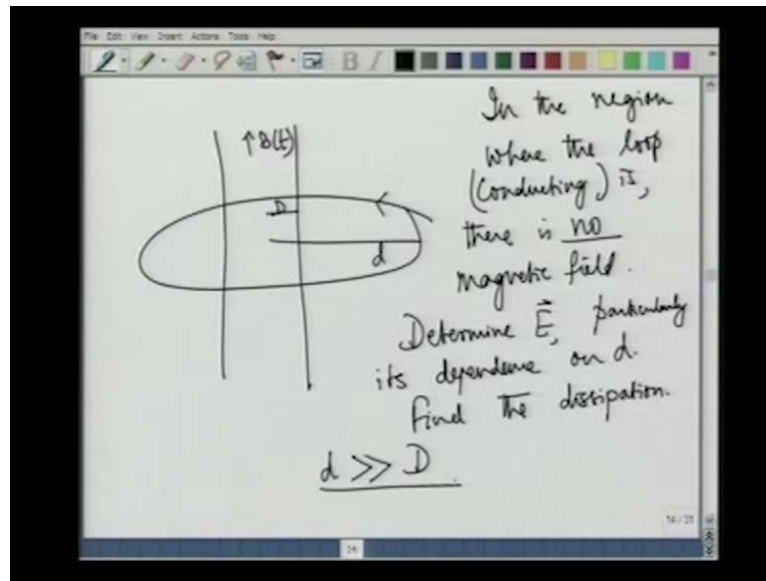 File Edit View Insert Actions Tools Help
B I
↑B(t)
D
d
In the region
where the loop
(Conducting) is,
there is no
magnetic field.
Determine E⃗, particularly
its dependence on d.
find the dissipation.
d >> D
14/21
14